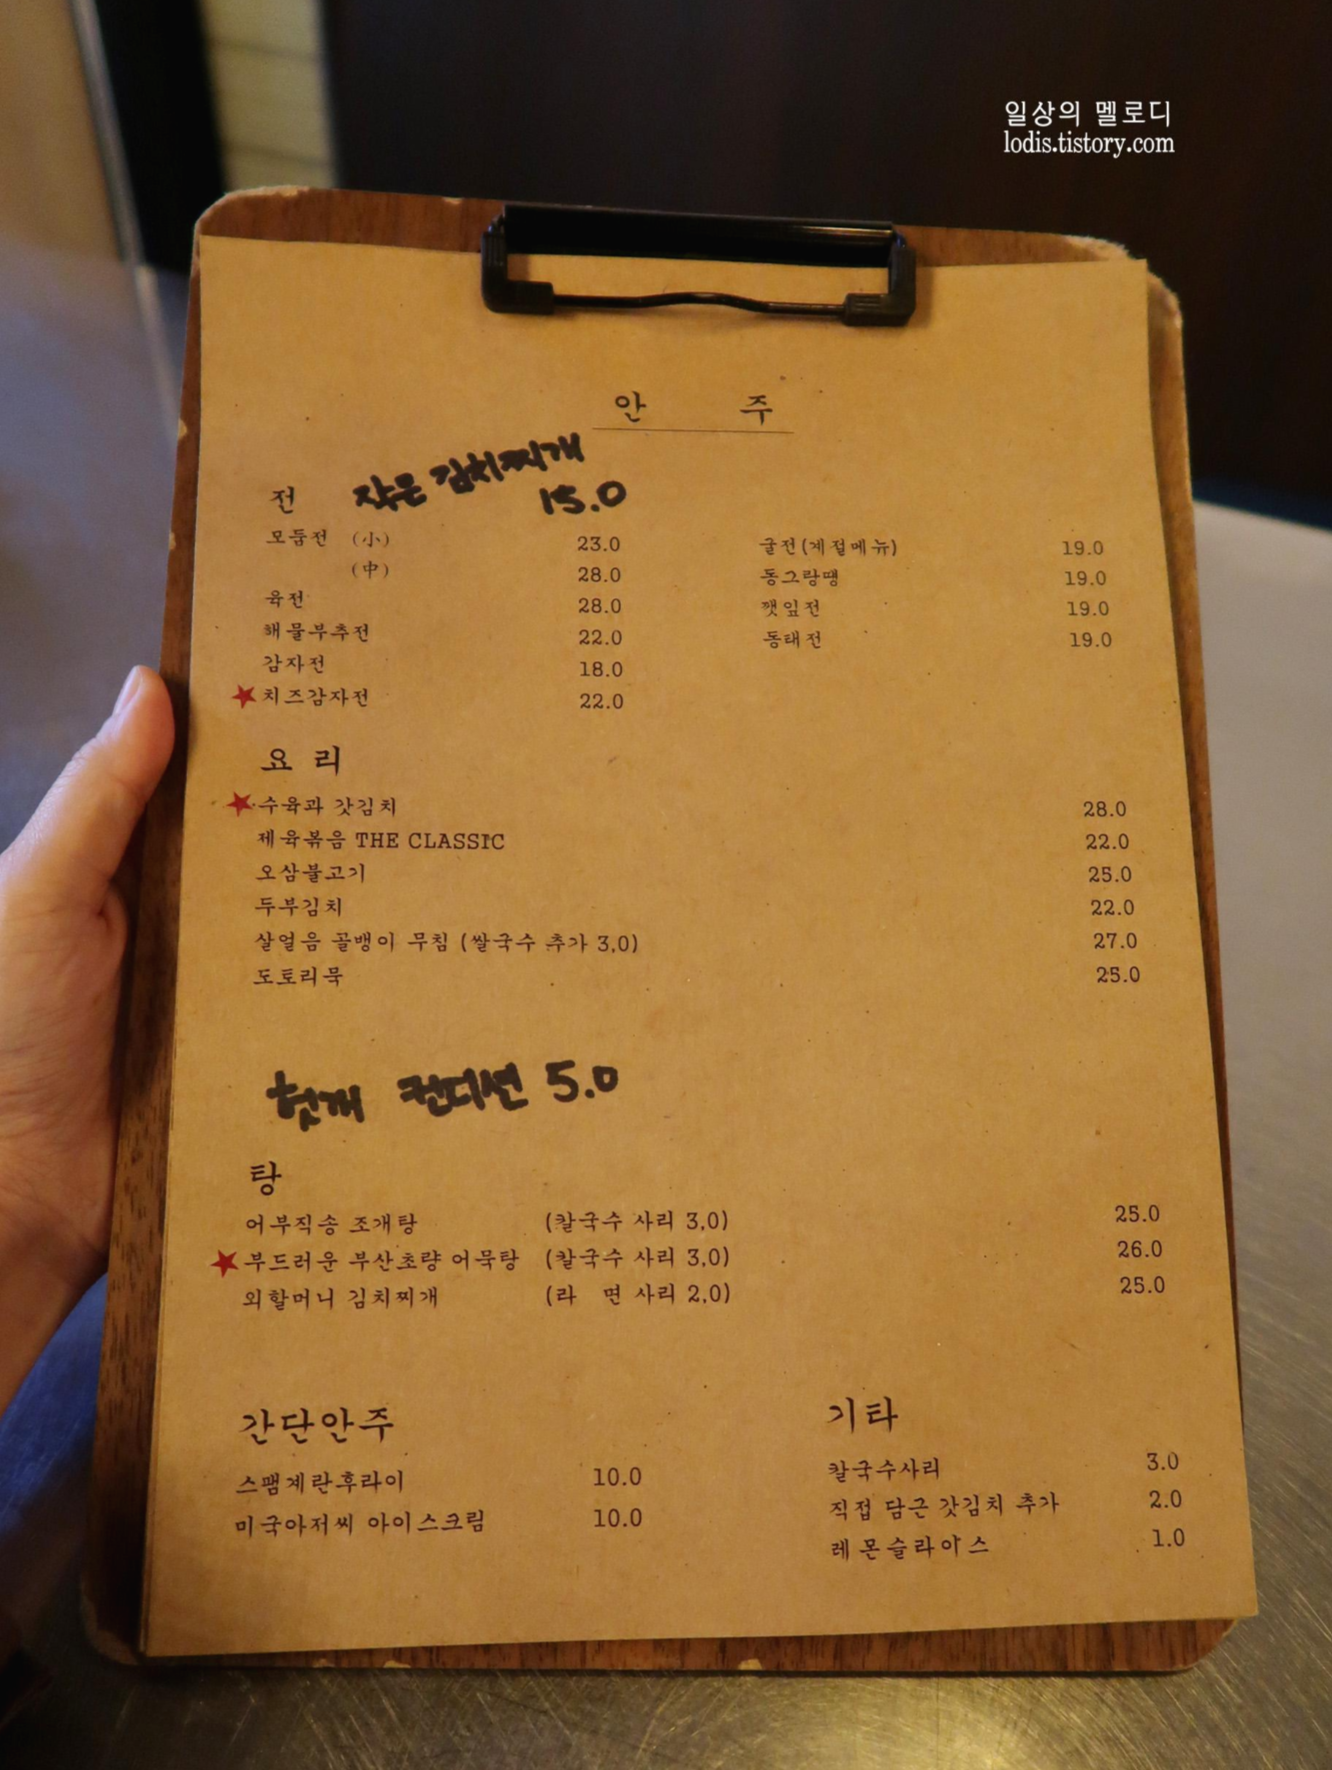 일상의 멜로디
lodis.tistory.com
안 주
작은 김치찌개
15.0
전
모둠전 (小) 23.0
(中) 28.0
육전 28.0
해물부추전 22.0
감자전 18.0
치즈감자전 22.0
굴전(계절메뉴) 19.0
동그랑땡 19.0
깻잎전 19.0
동태전 19.0
요 리
수육과 갓김치 28.0
제육볶음 THE CLASSIC 22.0
오삼불고기 25.0
두부김치 22.0
살얼음 골뱅이 무침 (쌀국수 추가 3,0) 27.0
도토리묵 25.0
헛개 컨디션 5.0
탕
어부직송 조개탕 (칼국수 사리 3,0) 25.0
부드러운 부산초량 어묵탕 (칼국수 사리 3,0) 26.0
외할머니 김치찌개 (라 면 사리 2,0) 25.0
간단안주
스팸계란후라이 10.0
미국아저씨 아이스크림 10.0
기타
칼국수사리 3.0
직접 담근 갓김치 추가 2.0
레몬슬라이스 1.0